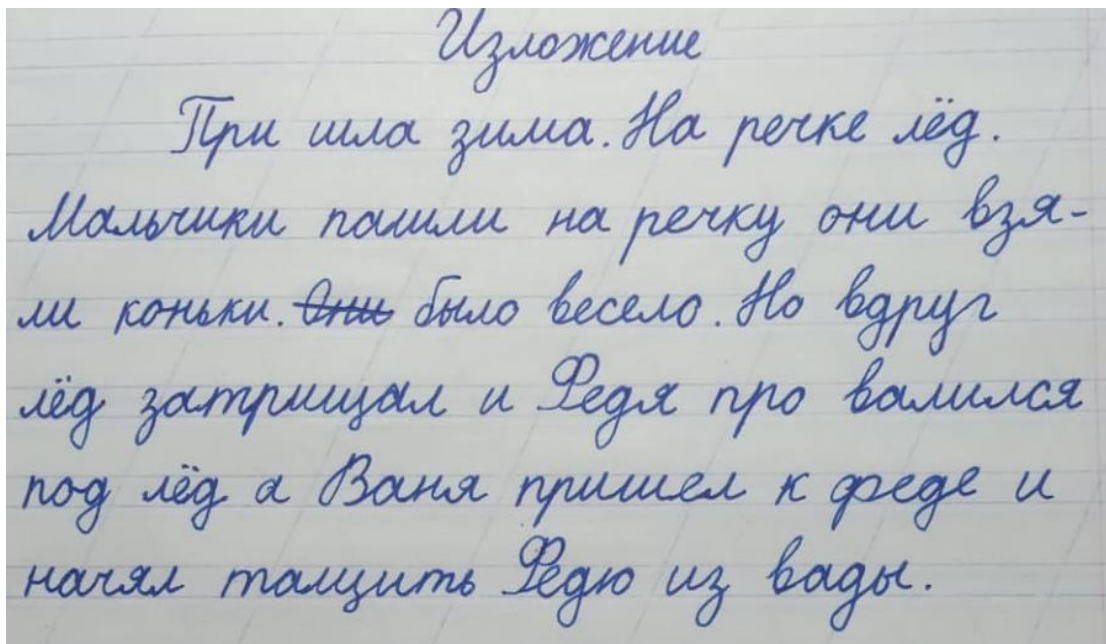 Изложение
При шла зима. На речке лёд.
Мальчики пашли на речку они взя-
ли коньки. Они было весело. Но вдруг
лёд затрищал и Федя про валился
под лёд а Ваня пришел к феде и
начял тащить Федю из вады.